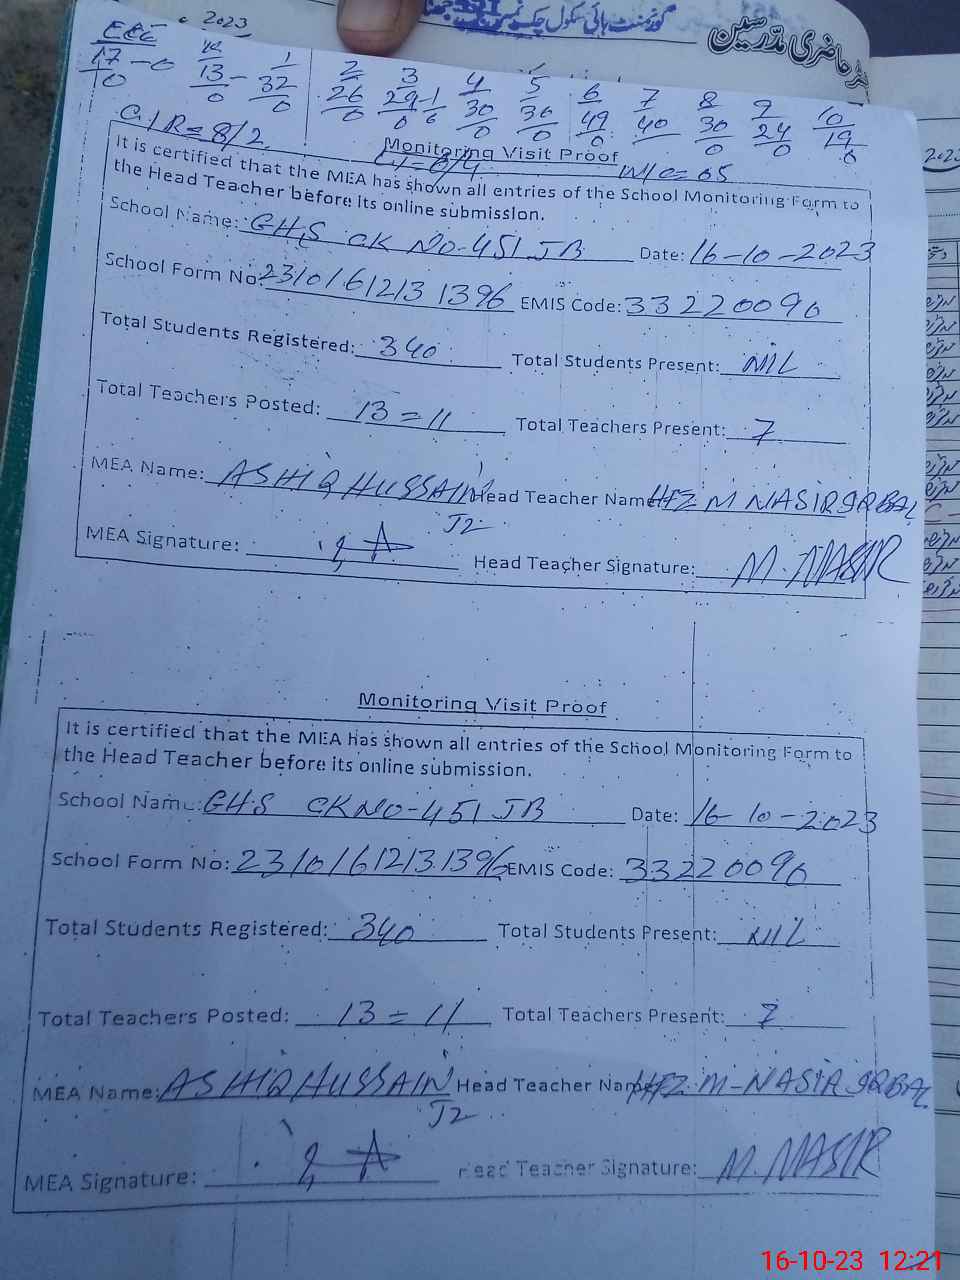 گورنمنٹ ہائی سکول چک نمبر
حاضری مدرسین
2023
ECE
17 – 0
0
13 –
0
1
32
0
2
26
0
3
29-1
0 6
4
30
0
5
36
0
6
49
0
7
40
8
30
0
9
24
0
10
19
0
G/R = 8/2
Monitoring Visit Proof
It is certified that the MEA has shown all entries of the School Monitoring Form to
the Head Teacher before its online submission.
School Name: GHS CK NO-451 JB Date: 16-10-2023
School Form No: 23101612131396 EMIS Code: 33220090
Total Students Registered: 340 Total Students Present: NIL
Total Teachers Posted: 13=11 Total Teachers Present: 7
MEA Name: ASHIQ HUSSAIN Head Teacher Name: HFZ M NASIR IQBAL
J2
MEA Signature: Head Teacher Signature: M. NASIR
Monitoring Visit Proof
It is certified that the MEA has shown all entries of the School Monitoring Form to
the Head Teacher before its online submission.
School Name: GHS CK NO-451 JB Date: 16-10-2023
School Form No: 23101612131396 EMIS Code: 33220090
Total Students Registered: 340 Total Students Present: NIL
Total Teachers Posted: 13=11 Total Teachers Present: 7
MEA Name: ASHIQ HUSSAIN Head Teacher Name: HFZ M-NASIR IQBAL
J2
MEA Signature: Head Teacher Signature: M. NASIR
16-10-23 12:21